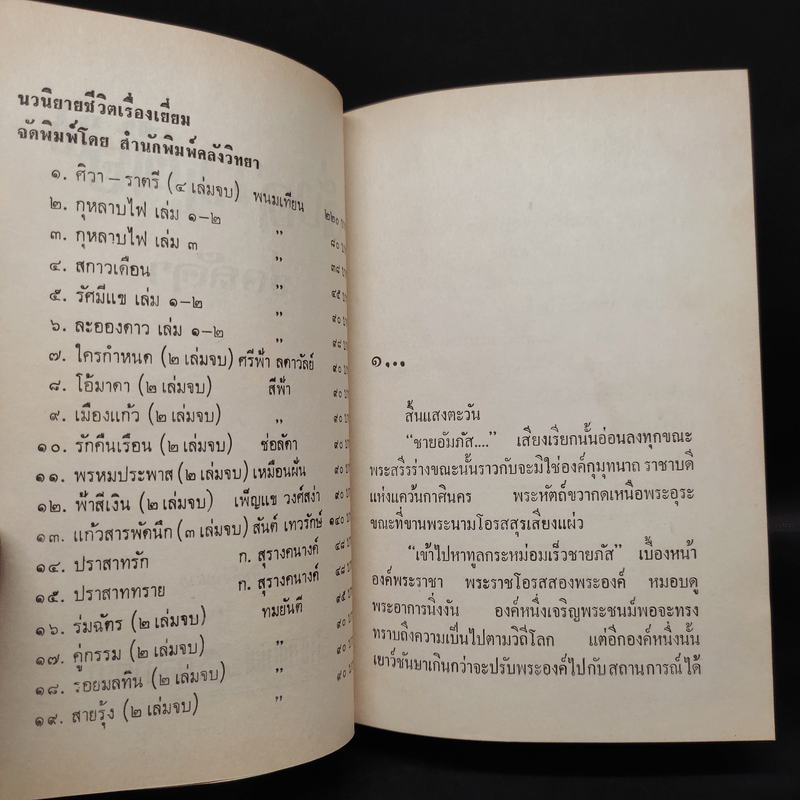 นวนิยายชีวิตเรื่องเยี่ยม
จัดพิมพ์โดย สำนักพิมพ์คลังวิทยา
๑. ศิวา – ราตรี (๔ เล่มจบ) พนมเทียน ๒๒๐
๒. กุหลาบไฟ เล่ม ๑–๒ ” ๘๐
๓. กุหลาบไฟ เล่ม ๓ ” ๓๘
๔. สกาวเดือน ” ๔๕
๕. รัศมีแข เล่ม ๑–๒ ” ๙๐
๖. ละอองดาว เล่ม ๑–๒ ” ๙๘
๗. ใครกำหนด (๒ เล่มจบ) ศรีฟ้า ลดาวัลย์ ๙๐
๘. โอ้มาดา (๒ เล่มจบ) สีฟ้า ๙๐
๙. เมืองแก้ว (๒ เล่มจบ) ” ๙๐
๑๐. รักคืนเรือน (๒ เล่มจบ) ช่อลัดา ๙๐
๑๑. พรหมประพาส (๒ เล่มจบ) เหมือนฝัน ๙๐
๑๒. ฟ้าสีเงิน (๒ เล่มจบ) เพ็ญแข วงศ์สง่า ๙๐
๑๓. แก้วสารพัดนึก (๓ เล่มจบ) สันต์ เทวรักษ์ ๑๔๐
๑๔. ปราสาทรัก ก. สุรางคนางค์ ๔๘
๑๕. ปราสาททราย ก. สุรางคนางค์ ๔๘
๑๖. ร่มฉัตร (๒ เล่มจบ) ทมยันตี ๙๕
๑๗. คู่กรรม (๒ เล่มจบ) ” ๙๐
๑๘. รอยมลทิน (๒ เล่มจบ) ” ๙๐
๑๙. สายรุ้ง (๒ เล่มจบ) ” ๙๐
๑...
สิ้นแสงตะวัน
“ชายอัมภัส....” เสียงเรียกนั้นอ่อนลงทุกขณะ
พระสรีรร่างขณะนั้นราวกับจะมิใช่องค์กุมุทนาถ ราชาบดี
แห่งแคว้นกาศินคร พระหัตถ์ขวากดเหนือพระอุระ
ขณะที่ขานพระนามโอรสสุรเสียงแผ่ว
“เข้าไปหาทูลกระหม่อมเร็วชายภัส” เบื้องหน้า
องค์พระราชา พระราชโอรสสองพระองค์ หมอบดู
พระอาการนิ่งงัน องค์หนึ่งเจริญพระชนม์พอจะทรง
ทราบถึงความเป็นไปตามวิถีโลก แต่อีกองค์หนึ่งนั้น
เยาว์ชันษาเกินกว่าจะปรับพระองค์ไปกับสถานการณ์ได้